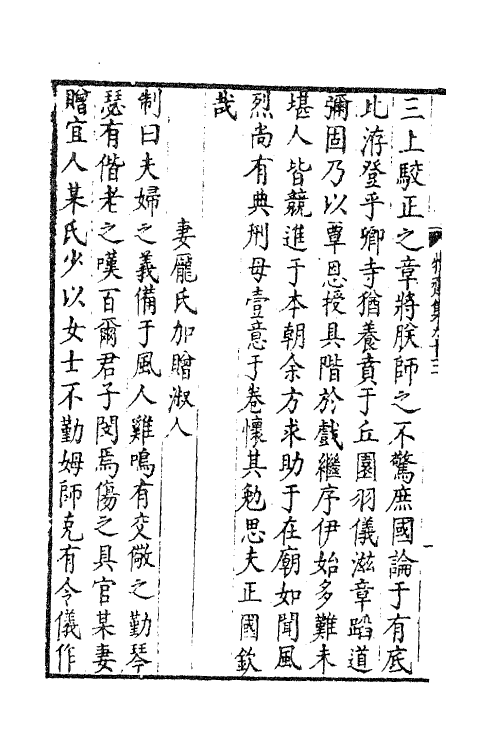 三上駮正之章將朕師之不驚庶國論于有底
比洊登乎卿寺猶養賁于丘園羽儀滋章蹈道
彌固乃以覃恩授具階於戲繼序伊始多難未
堪人皆競進于本朝余方求助于在廟如聞風
烈尚有典刑毋壹意于卷懷其勉思夫正國欽
哉
妻龐氏加贈淑人
制曰夫婦之義備于風人雞鳴有交儆之勤琴
瑟有偕老之嘆百爾君子閔焉傷之具官某妻
贈宜人某氏少以女士不勤姆師克有令儀作